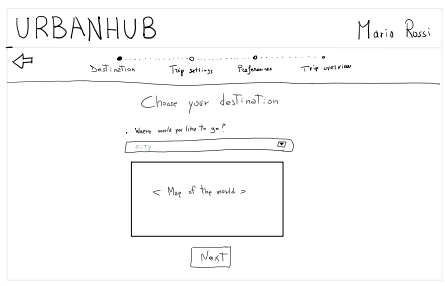 URBANHUB
Mario Rossi
Destination Trip settings Preferences Trip overview
Choose your destination
. Where would you like to go?
city
< Map of the world >
Next